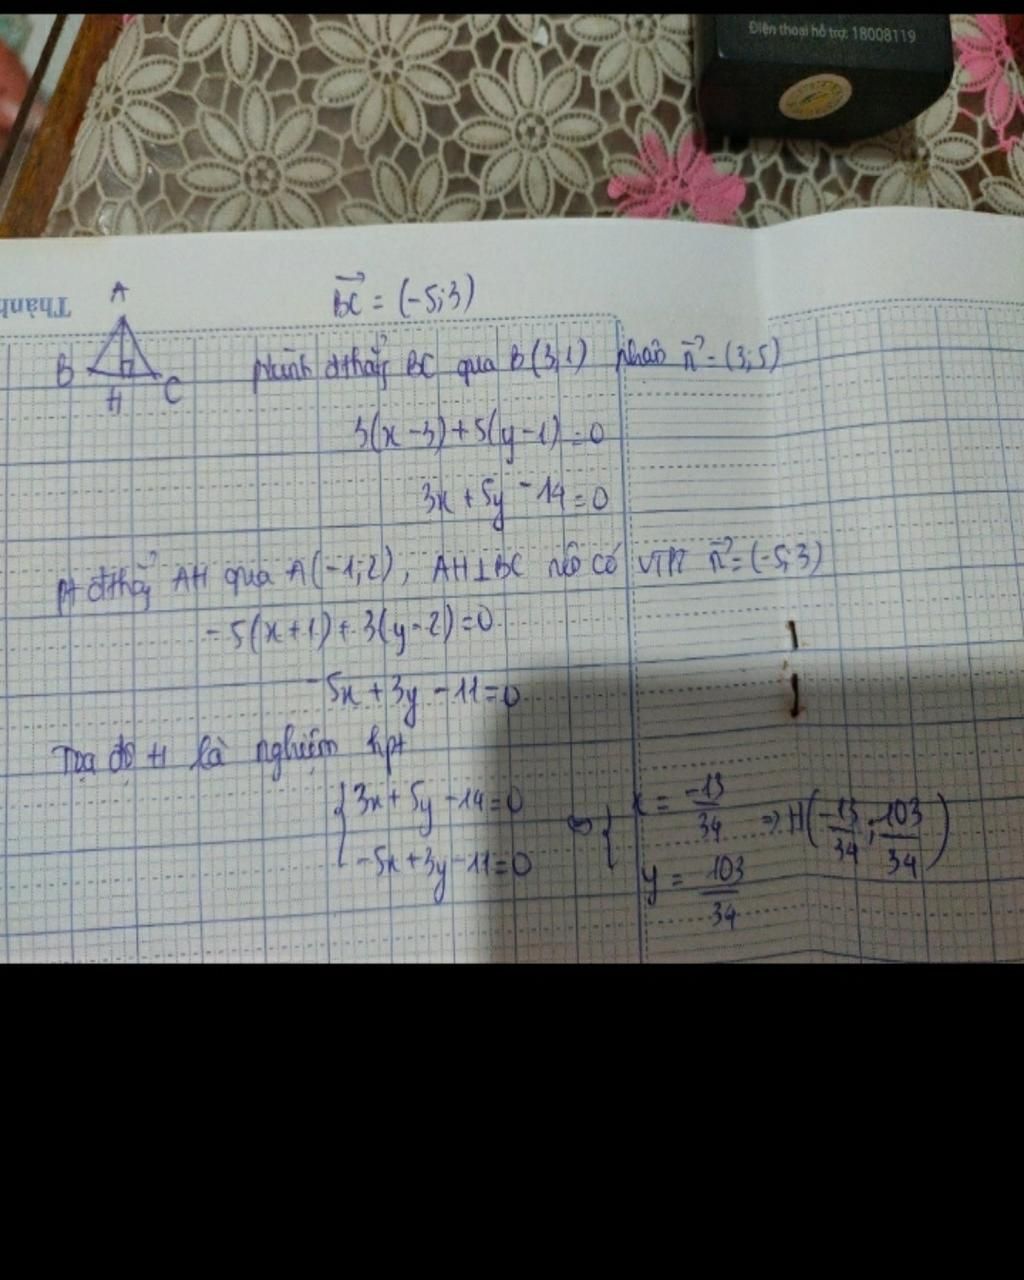 Điện thoại hỗ trợ: 18008119
Thành
A
B
H
C
BC = (-5;3)
đthẳg BC qua B(3,1) n = (3;5)
3(x-3)+5(y-1)=0
3x + 5y - 14 = 0
Pt đthẳg AH qua A(-1;2), AH⊥BC nên có VTPT n = (-5;3)
-5(x+1)+3(y-2)=0
-5x + 3y - 11 = 0
Tọa độ H là nghiệm hpt
{ 3x + 5y - 14 = 0
-5x + 3y - 11 = 0
⇔ { x = -13/34 ⇒ H(-13/34; 103/34)
y = 103/34